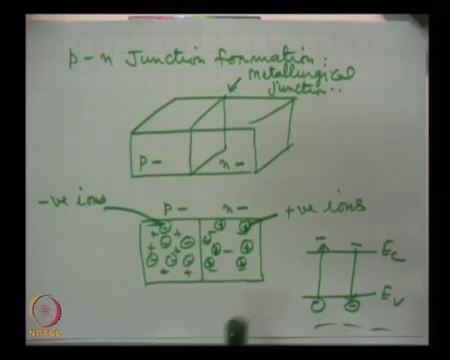 p-n Junction formation:
metallurgical
junction..
p- n-
-ve ions p- n- +ve ions
- -
Ec
Ev
NPTEL